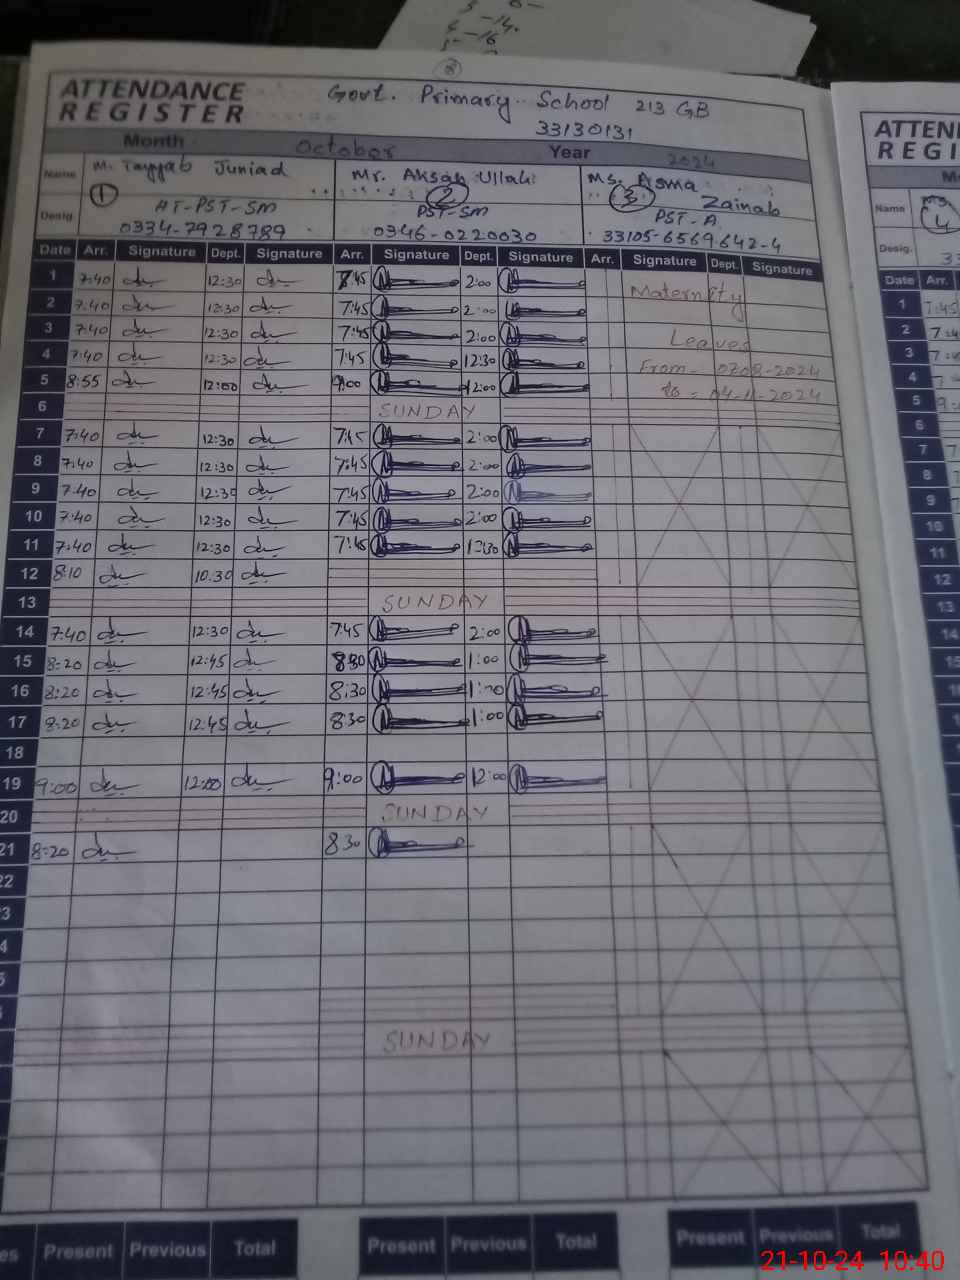 3 6-
4 -14.
-16
8
ATTENDANCE
REGISTER
Govt. Primary School 213 GB
33130131
Month October Year 2024
Name M. Tayyab Juniad Mr. Ahsan Ullah Ms. Asma Zainab
1 2 3
Desig. HT-PST-SM PST-SM PST-A
0334-7928789 0346-0220030 33105-6569642-4
Date Arr. Signature Dept. Signature Arr. Signature Dept. Signature Arr. Signature Dept. Signature
1 7:40 12:30 7:45 2:00 Maternity
2 7:40 12:30 7:45 2:00
3 7:40 12:30 7:45 2:00 Leaves
4 7:40 12:30 7:45 12:30 From-
5 8:55 12:00 9:00 12:00 to = 04-11-2024
6 SUNDAY
7 7:40 12:30 7:45 2:00
8 7:40 12:30 7:45 2:00
9 7:40 12:30 7:45 2:00
10 7:40 12:30 7:45 2:00
11 7:40 12:30 7:45 12:30
12 8:10 10:30
13 SUNDAY
14 7:40 12:30 7:45 2:00
15 8:20 12:45 8:30 1:00
16 8:20 12:45 8:30 1:00
17 8:20 12:45 8:30 1:00
18
19 9:00 12:00 9:00 12:00
20 SUNDAY
21 8:20 8:30
22
3
4
5
SUNDAY
es Present Previous Total Present Previous Total Present Previous Total
ATTEN
REGI
Name Ms.
4
Desig. 33
Date Arr.
1 7:45
2
3
4
5
6
7
8
9
10
11
12
13
14
15
16
21-10-24 10:40